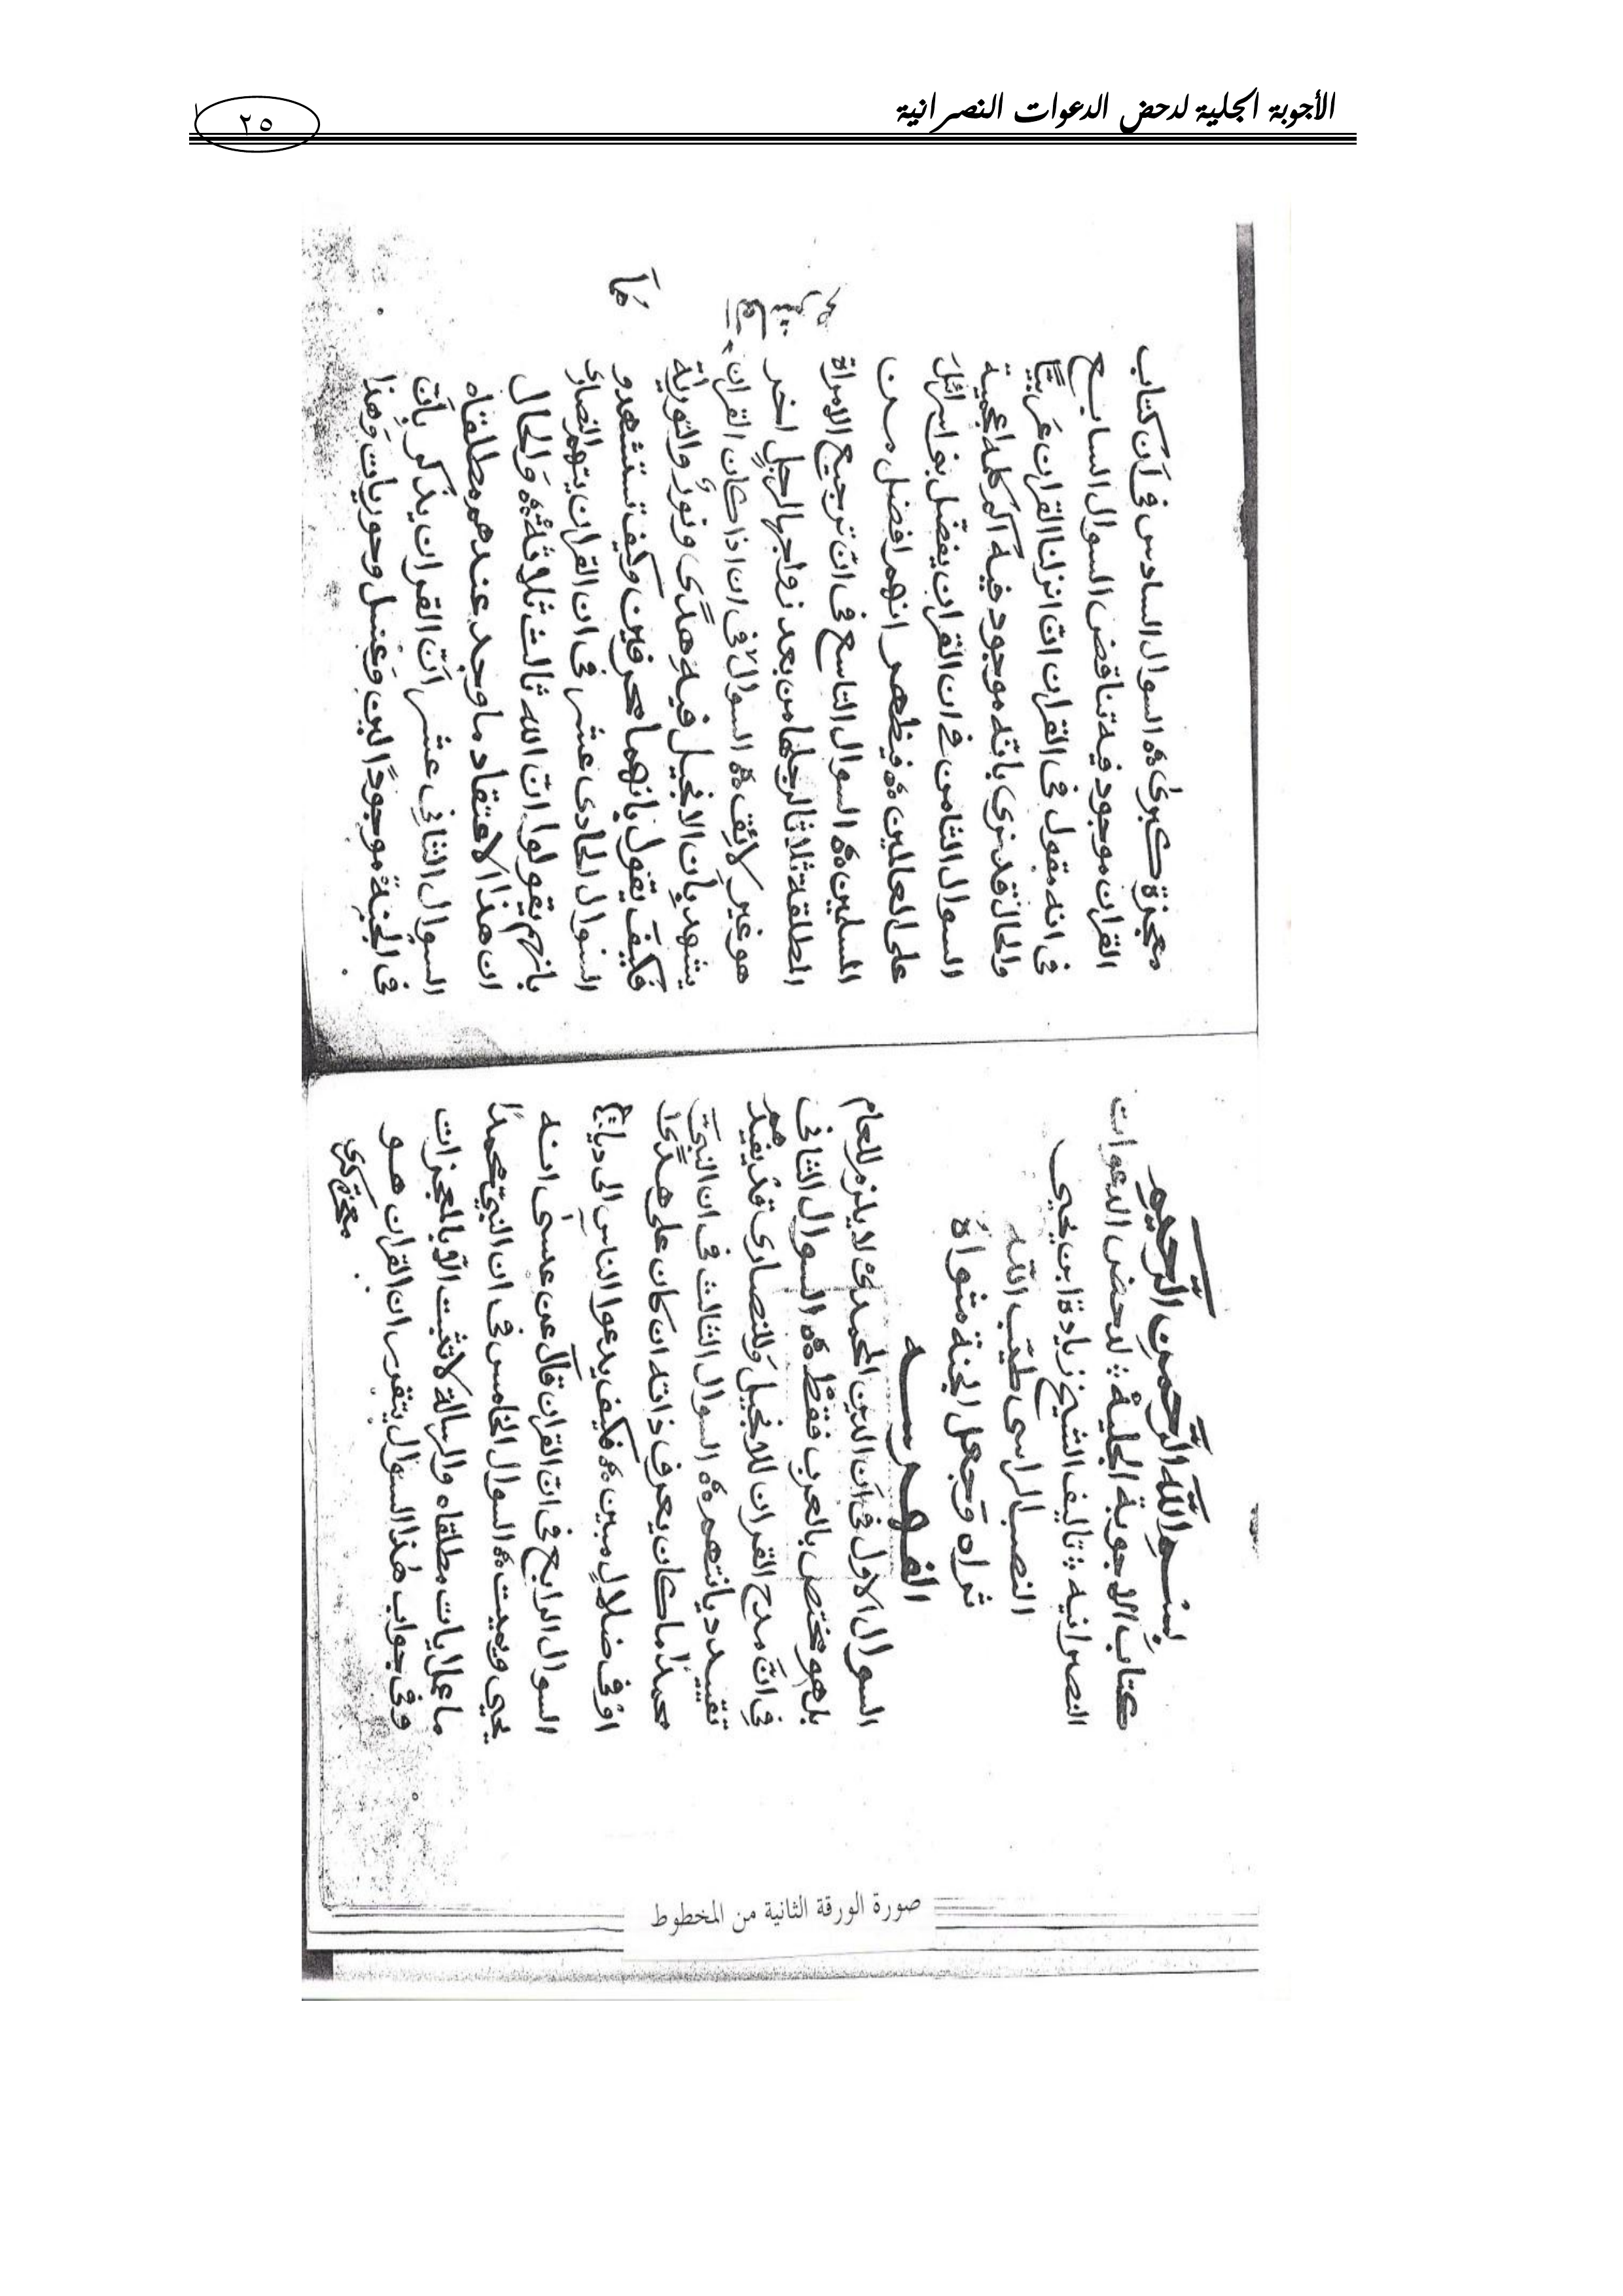 الأجوبة الجلية لدحض الدعوات النصرانية
٢٥
بسم الله الرحمن الرحيم
كتاب الاجوبة الجلية لدحض الدعوات
النصرانيه تاليف الشيخ زيادة ابن يحيى
النصب الراسى طيب الله
ثراه وجعل الجنة مثواهُ
الفهرسه
السوال الاول فى ان الدين المحمدى لا يلزم للعام
بل هو مختص بالعرب فقط السوال الثانى
فى ان مدح القران للانجيل وللنصارى قد يفيدهم
تقييد ديانتهم السوال الثالث فى ان النبى
محمدا ما كان يعرف ذاته ان كان على هدًى
او فى ضلالٍ مبين فكيف يدعوا الناس الى ديانة
السوال الرابع فى ان القران قال عن عيسى انه
يحيى ويميت السوال الخامس فى ان النبى محمدًا
ما عمل ايات مطلقاه والرسالة لا تثبت الا بالمعجزات
وفى جواب هذا السوال يتقرر ان القران هو
معجزة كبرى
معجزة كبرى السوال السادس فى ان كتاب
القران موجود فيه تناقض السوال السابع
فى انه مقول فى القران انا انزلنا القران عربيًا
والحال قد نرى بانه موجود فيه اكم كلمه اعجمية
السوال الثامن فى ان القران يفضل بنو اسرائل
على العالمين فيظهر انهم افضل من
المسلمين السوال التاسع فى ان ترجيع الامراة
المطلقة ثلاثا لرجلها من بعد زواجها لرجلٍ اخر
هو غير لائق السوال فى ان اذا كان القران
يشهد بان الانجيل فيه هدًى ونورٌ والتوراة
فكيف يقول بانهما محرفين وكيف تستشهدو
السوال الحادى عشر فى ان القران يتهم النصارى
بانهم يقولوا ان الله ثالث ثلاثة والحال
ان هذا الاعتقاد ما وجد عندهم مطلقاه
السوال الثانى عشر ان القران يذكر بان
فى الجنة موجودًا لبن وعسل وحوريات وهذا
صورة الورقة الثانية من المخطوط